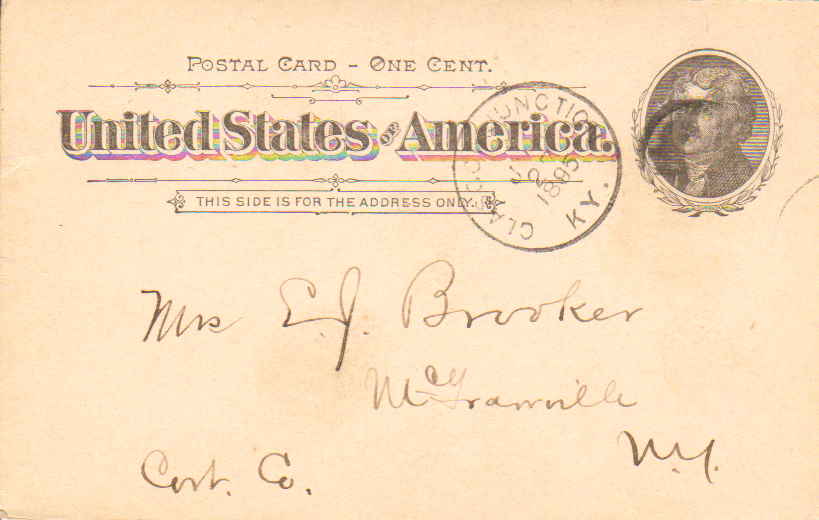 POSTAL CARD - ONE CENT.
United States OF America.
THIS SIDE IS FOR THE ADDRESS ONLY.
JUNCTION
1895
KY.
Mrs E. J. Brooker
McGrawville
Cort. Co.
N.Y.